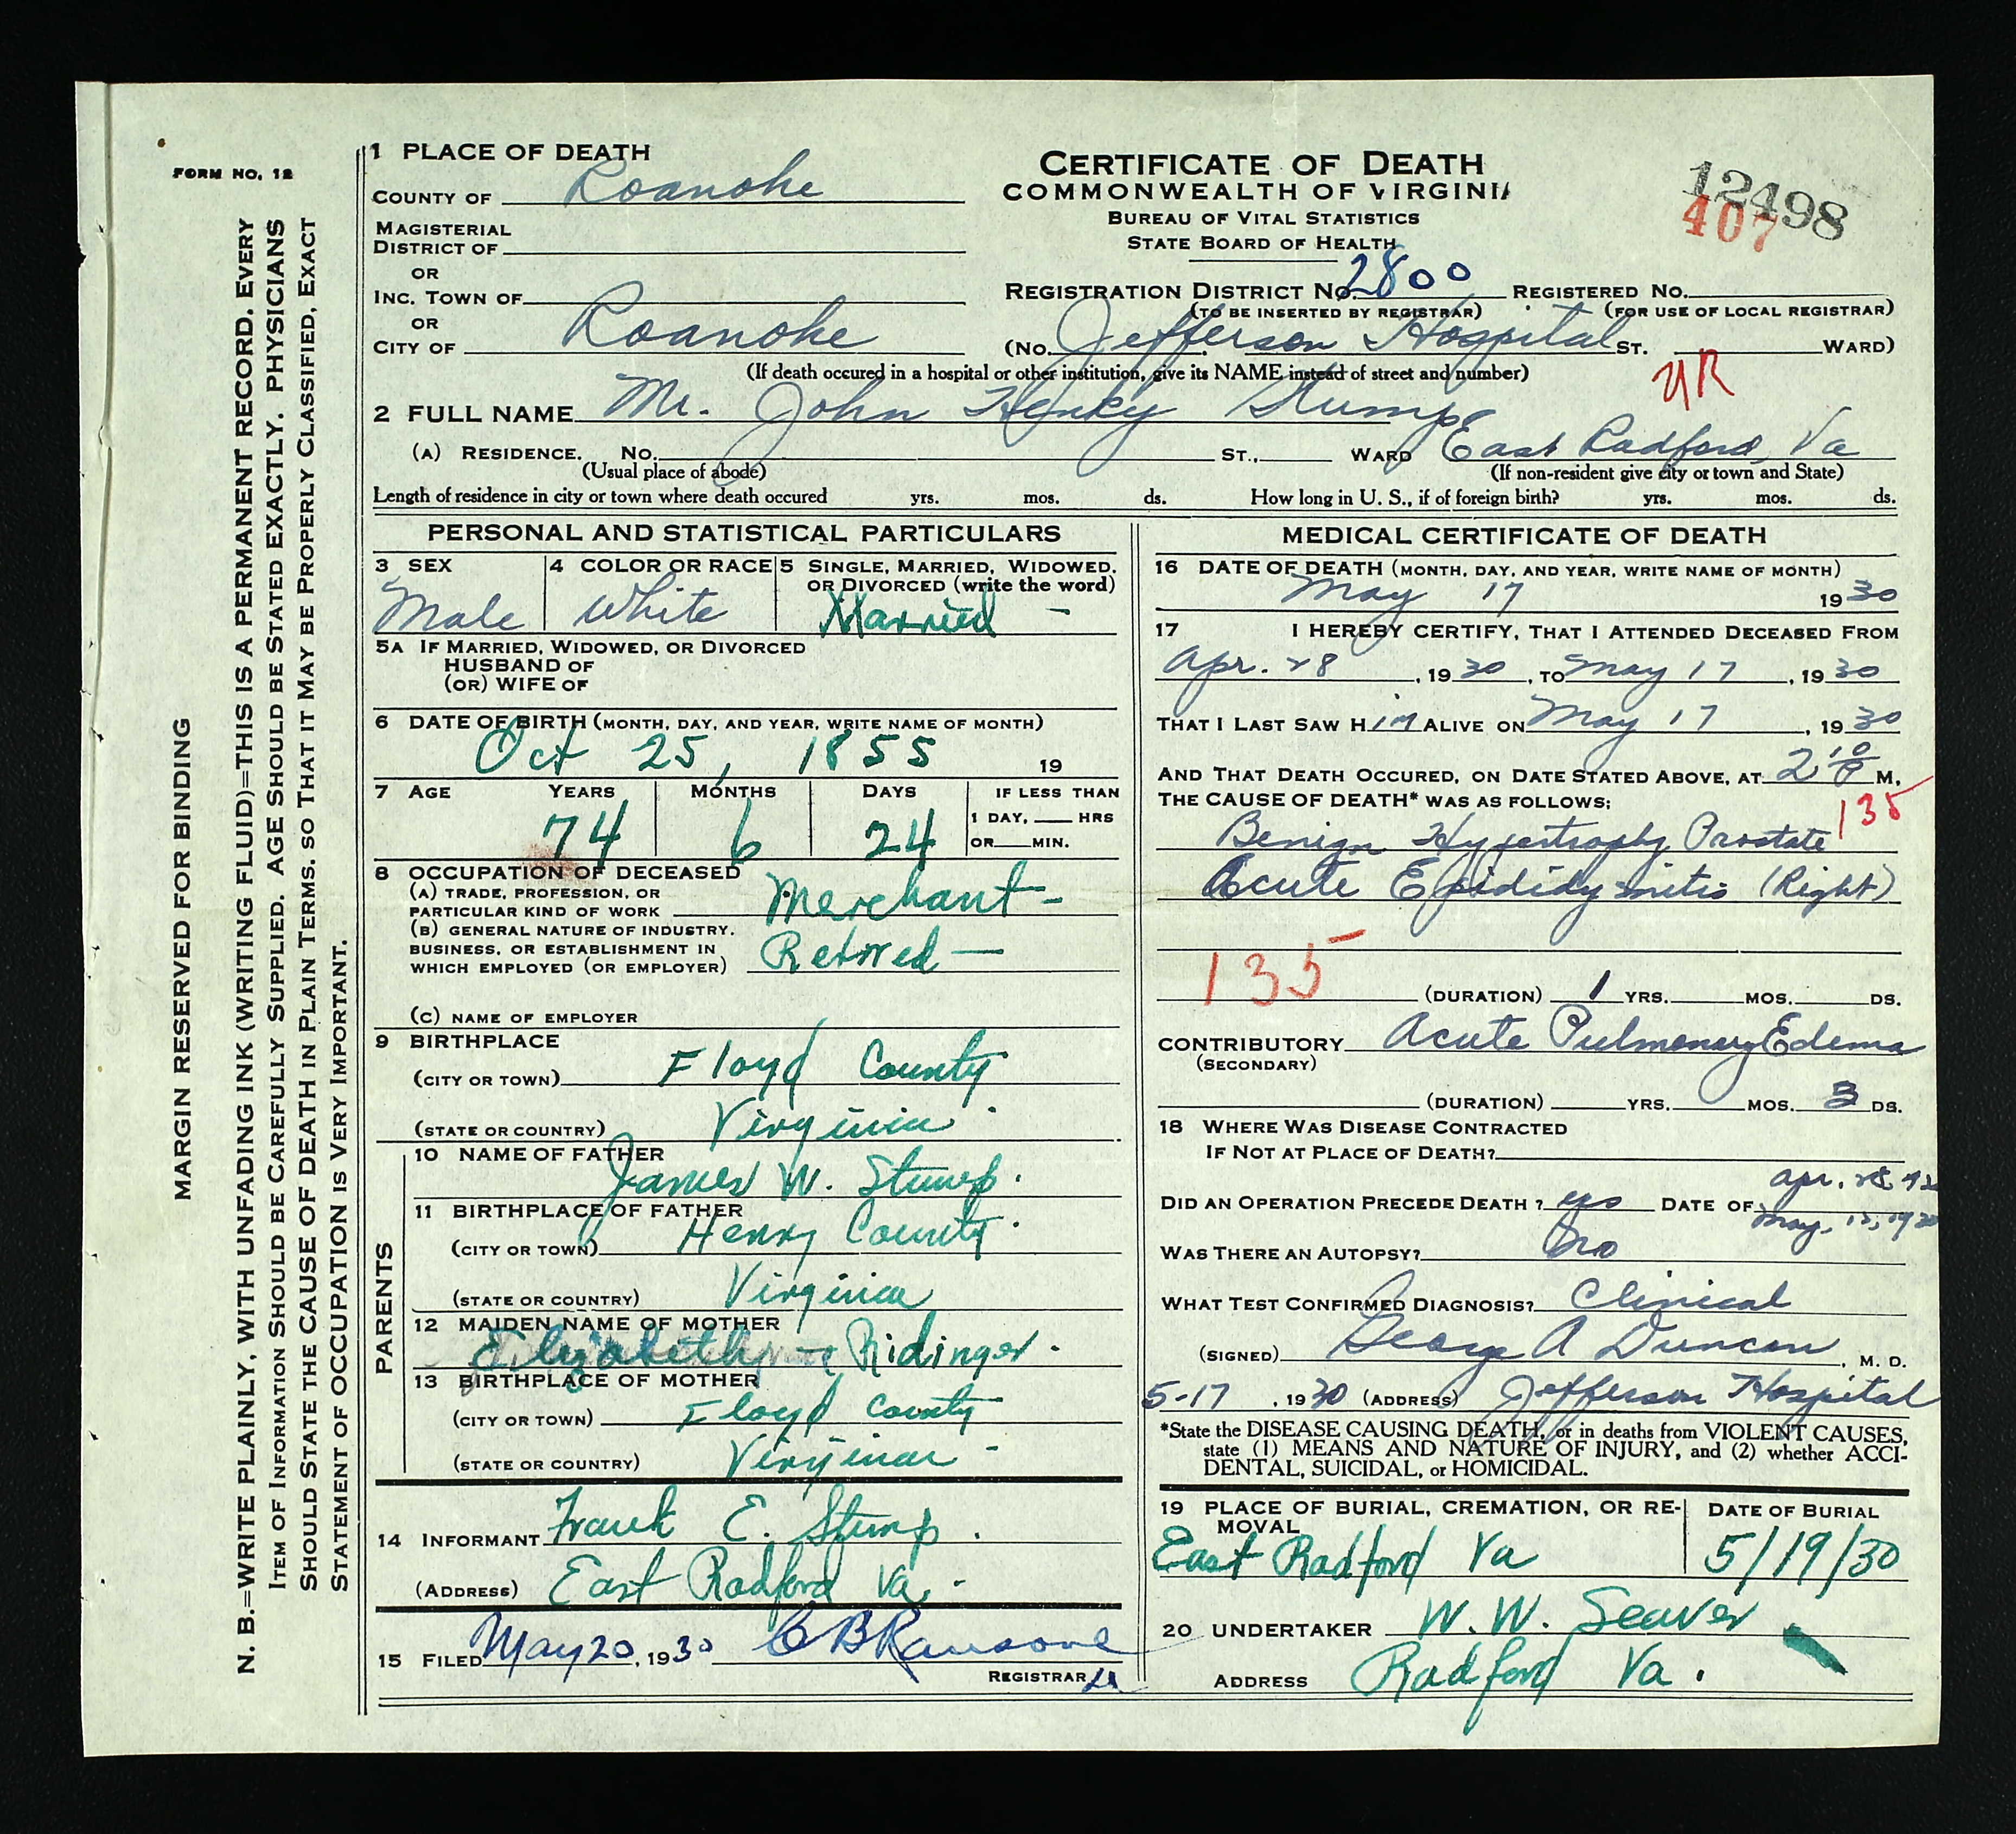 FORM NO. 12
MARGIN RESERVED FOR BINDING
N. B.=WRITE PLAINLY, WITH UNFADING INK (WRITING FLUID)=THIS IS A PERMANENT RECORD. EVERY
ITEM OF INFORMATION SHOULD BE CAREFULLY SUPPLIED. AGE SHOULD BE STATED EXACTLY. PHYSICIANS
SHOULD STATE THE CAUSE OF DEATH IN PLAIN TERMS. SO THAT IT MAY BE PROPERLY CLASSIFIED, EXACT
STATEMENT OF OCCUPATION IS VERY IMPORTANT.
1 PLACE OF DEATH
COUNTY OF Roanoke
MAGISTERIAL
DISTRICT OF
OR
INC. TOWN OF
OR
CITY OF Roanoke
CERTIFICATE OF DEATH
COMMONWEALTH OF VIRGINIA
BUREAU OF VITAL STATISTICS
STATE BOARD OF HEALTH
12498
407
REGISTRATION DISTRICT No. 2800 REGISTERED NO.
(TO BE INSERTED BY REGISTRAR) (FOR USE OF LOCAL REGISTRAR)
(No. Jefferson Hospital ST. WARD)
(If death occured in a hospital or other institution, give its NAME instead of street and number)
2 FULL NAME Mr. John Henry Stump
(A) RESIDENCE. NO. ST., WARD East Radford, Va
(Usual place of abode) (If non-resident give city or town and State)
Length of residence in city or town where death occured yrs. mos. ds. How long in U. S., if of foreign birth? yrs. mos. ds.
PERSONAL AND STATISTICAL PARTICULARS
3 SEX 4 COLOR OR RACE 5 SINGLE, MARRIED, WIDOWED,
OR DIVORCED (write the word)
Male White Married -
5A IF MARRIED, WIDOWED, OR DIVORCED
HUSBAND OF
(OR) WIFE OF
6 DATE OF BIRTH (MONTH, DAY, AND YEAR, WRITE NAME OF MONTH)
Oct 25, 1855 19
7 AGE YEARS MONTHS DAYS IF LESS THAN
1 DAY, HRS
74 6 24 OR MIN.
8 OCCUPATION OF DECEASED
(A) TRADE, PROFESSION, OR
PARTICULAR KIND OF WORK Merchant -
(B) GENERAL NATURE OF INDUSTRY.
BUSINESS, OR ESTABLISHMENT IN
WHICH EMPLOYED (OR EMPLOYER) Retired -
(C) NAME OF EMPLOYER
9 BIRTHPLACE
(CITY OR TOWN) Floyd County
(STATE OR COUNTRY) Virginia.
PARENTS
10 NAME OF FATHER
James W. Stump.
11 BIRTHPLACE OF FATHER
(CITY OR TOWN) Henry County.
(STATE OR COUNTRY) Virginia
12 MAIDEN NAME OF MOTHER
Elizabeth Ridinger.
13 BIRTHPLACE OF MOTHER
(CITY OR TOWN) Floyd County
(STATE OR COUNTRY) Virginia -
14 INFORMANT Frank E. Stump.
(ADDRESS) East Radford Va. -
15 FILED May 20, 1930 C B Ransone
REGISTRAR
MEDICAL CERTIFICATE OF DEATH
16 DATE OF DEATH (MONTH, DAY, AND YEAR, WRITE NAME OF MONTH)
May 17 1930
17 I HEREBY CERTIFY, THAT I ATTENDED DECEASED FROM
Apr. 28, 1930, TO May 17, 1930
THAT I LAST SAW Him ALIVE ON May 17, 1930
AND THAT DEATH OCCURED, ON DATE STATED ABOVE, AT 2 10 P M.
THE CAUSE OF DEATH* WAS AS FOLLOWS: 135
Benign Hypertrophy Prostate
Acute Epididymitis (Right)
135 (DURATION) 1 YRS. MOS. DS.
CONTRIBUTORY Acute Pulmonary Edema
(SECONDARY)
(DURATION) YRS. MOS. 3 DS.
18 WHERE WAS DISEASE CONTRACTED
IF NOT AT PLACE OF DEATH?
DID AN OPERATION PRECEDE DEATH? yes DATE OF Apr.
May,
WAS THERE AN AUTOPSY? no
WHAT TEST CONFIRMED DIAGNOSIS? Clinical
(SIGNED) George A Duncan, M. D.
5-17, 1930 (ADDRESS) Jefferson Hospital
*State the DISEASE CAUSING DEATH, or in deaths from VIOLENT CAUSES,
state (1) MEANS AND NATURE OF INJURY, and (2) whether ACCI-
DENTAL, SUICIDAL, or HOMICIDAL.
19 PLACE OF BURIAL, CREMATION, OR RE-
MOVAL DATE OF BURIAL
East Radford Va 5/19/30
20 UNDERTAKER W. W. Seaver
ADDRESS Radford Va.